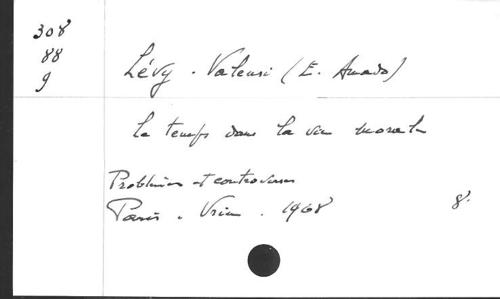 308
88
9
Lévy-Valensi (E. Amado)
Le temps dans la vie morale
Problèmes et controverses
Paris. Vrin. 1968 8.